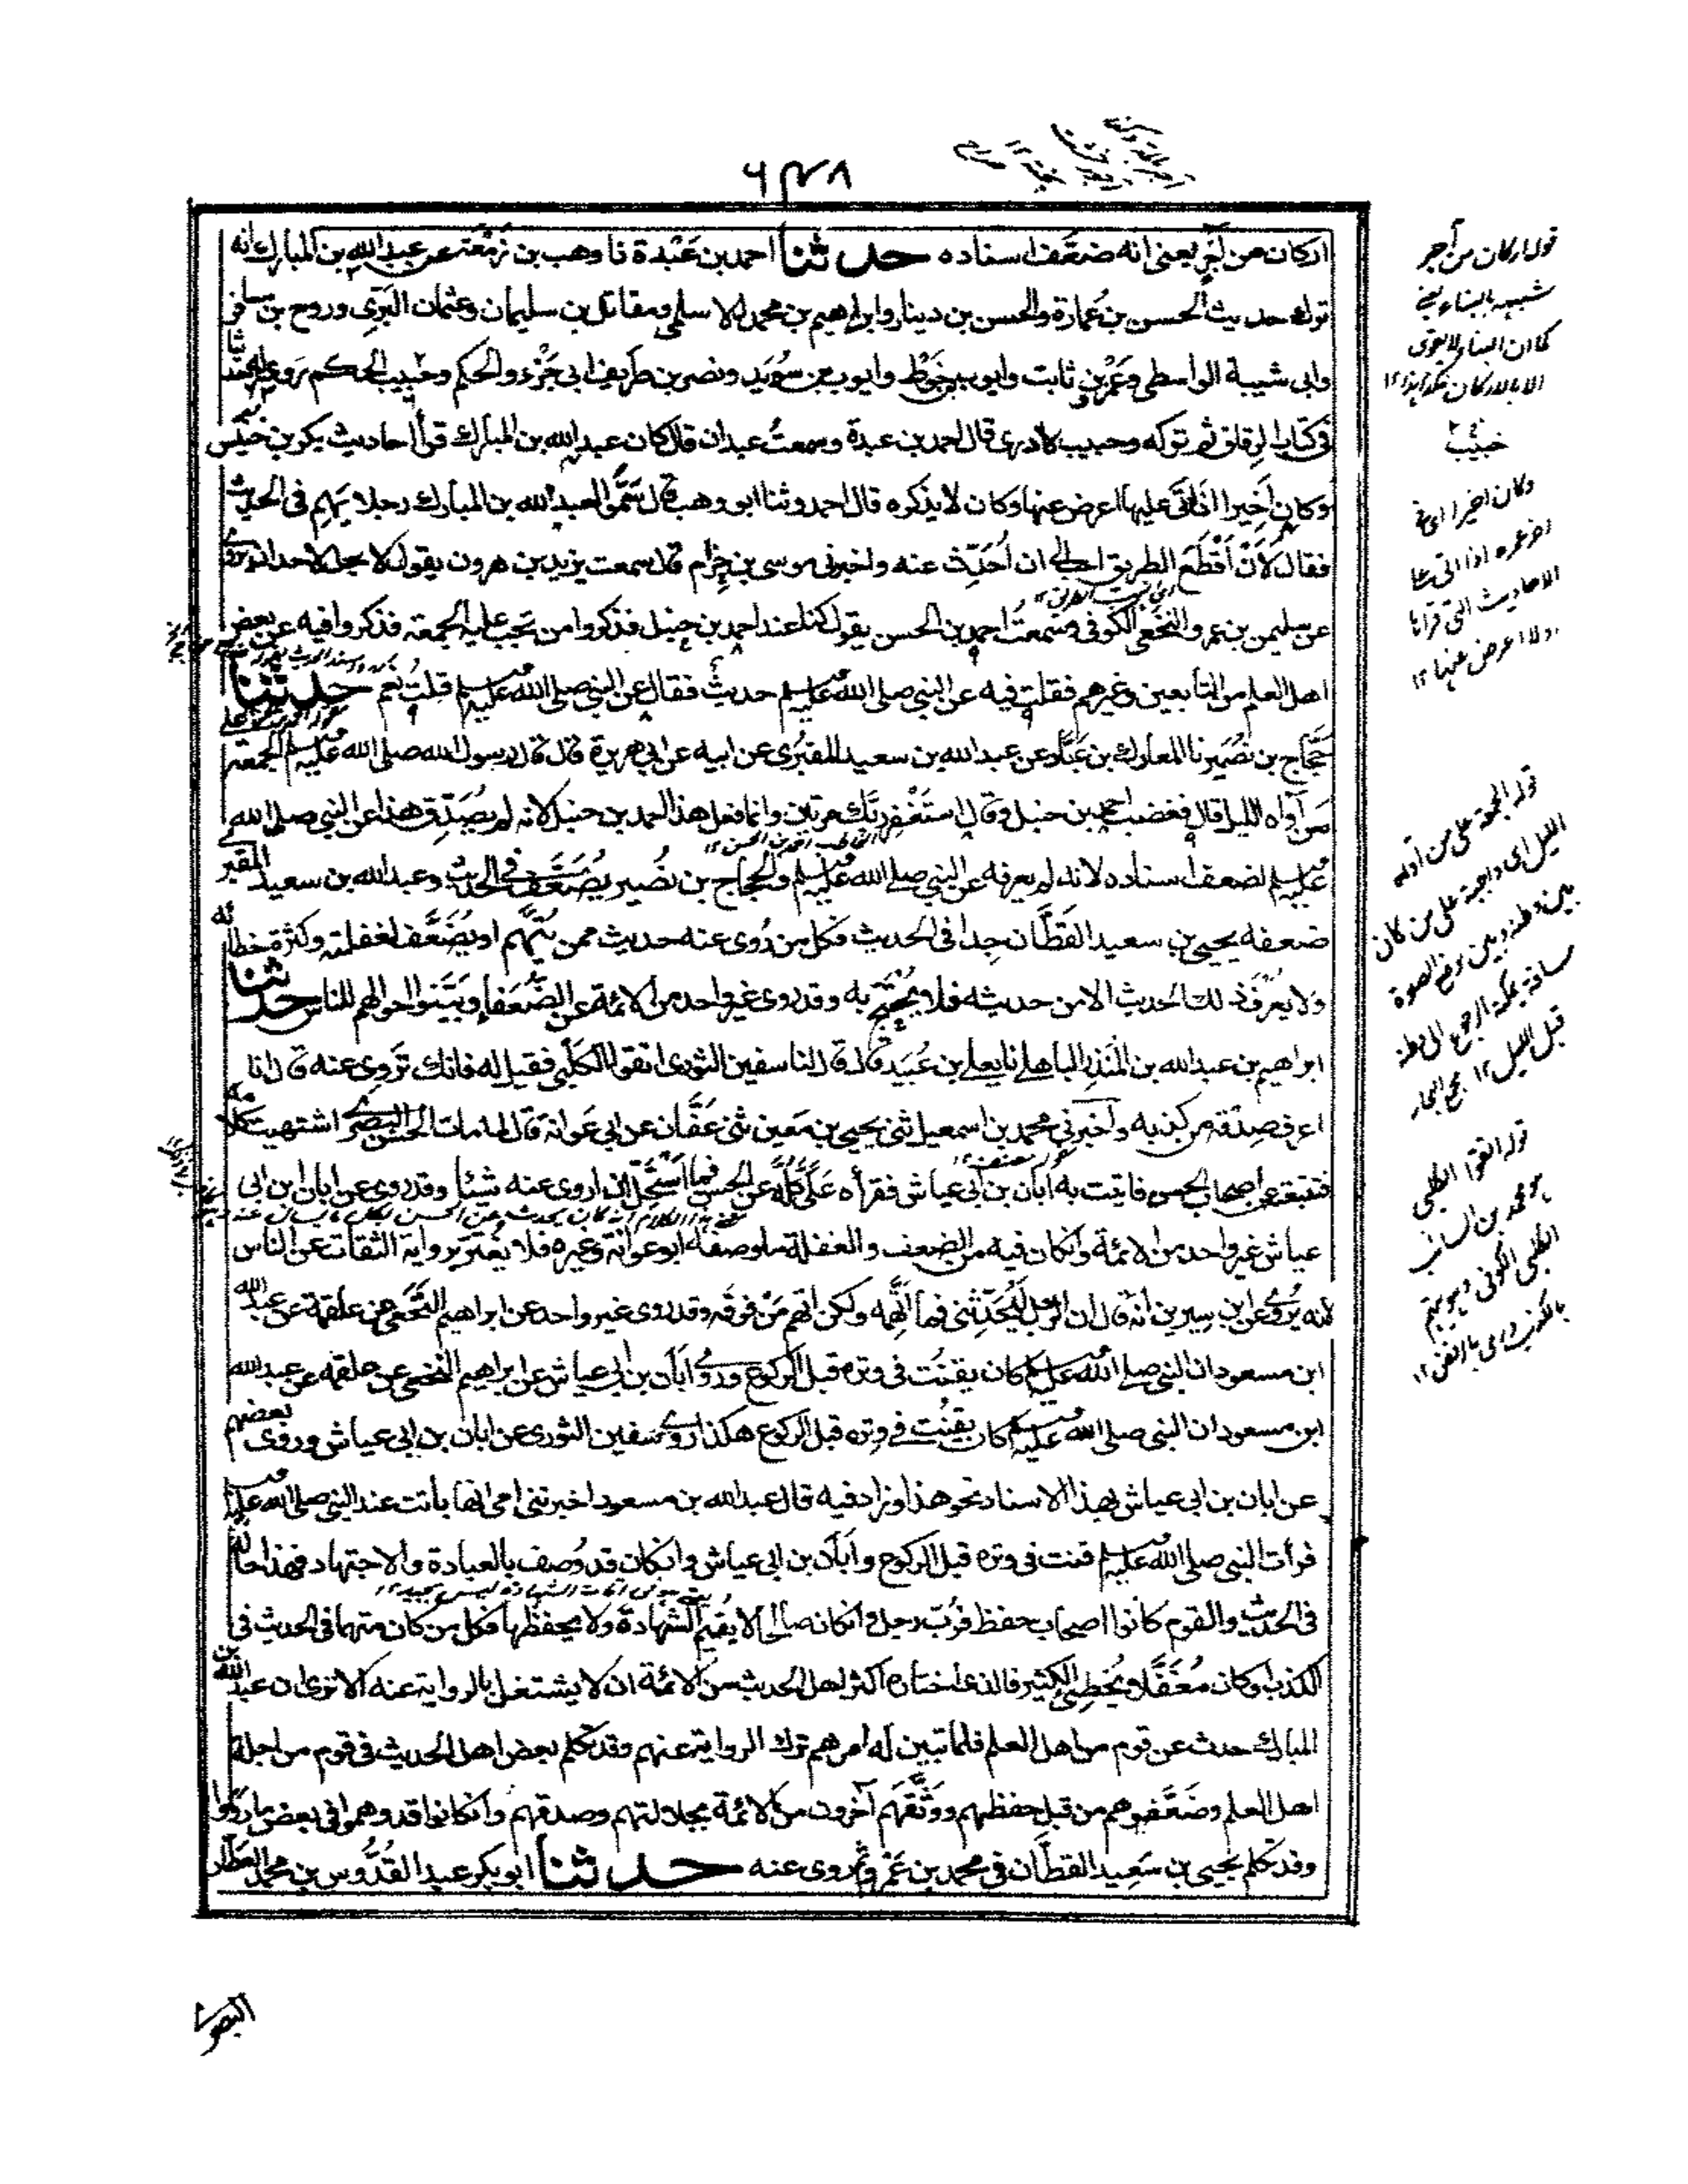 ۶۴۸
اركان من آجر يعنى انه ضعف اسناده حدثنا احمد بن عبدة نا وهب بن زمعة عن عبد الله بن المبارك انه
ترك حديث الحسن بن عمارة والحسن بن دينار وابراهيم بن محمد الاسلمى ومقاتل بن سليمان وعثمان البرى وروح بن مسافر
وابى شيبة الواسطى وعمرو بن ثابت وايوب بن خوط وايوب بن سويد ونصر بن طريف ابى جزء والحكم وحبيب الحكم روى له حديثا
فى كتاب الرقاق ثم تركه وحبيب لا ادرى قال احمد بن عبدة وسمعت عبدان قال كان عبد الله بن المبارك قرأ احاديث بكر بن خنيس
وكان اخيرا اذا اتى عليها اعرض عنها وكان لا يذكره قال احمد وثنا ابو وهب قال سموا لعبد الله بن المبارك رجلا يهم فى الحديث
فقال لان اقطع الطريق احب الى ان احدث عنه واخبرنى موسى بن حزام قال سمعت يزيد بن هرون يقول لا يحل لاحد ان يروى
عن سليمن بن عمرو النخعى الكوفى وسمعت احمد بن الحسن يقول كنا عند احمد بن حنبل فذكروا من تجب عليه الجمعة فذكروا فيه عن بعض
اهل العلم من التابعين وغيرهم فقلت فيه عن النبى صلى الله عليه وسلم حديث فقال عن النبى صلى الله عليه وسلم قلت نعم حدثنا
حجاج بن نصير نا المعارك بن عباد عن عبد الله بن سعيد المقبرى عن ابيه عن ابى هريرة قال قال رسول الله صلى الله عليه وسلم الجمعة على
من آواه الليل قال فغضب احمد بن حنبل وقال استغفر ربك مرتين وانما فعل هذا احمد بن حنبل لانه لم يصدق هذا عن النبى صلى الله
عليه وسلم لضعف اسناده لانه لم يعرفه عن النبى صلى الله عليه وسلم والحجاج بن نصير يضعف فى الحديث وعبد الله بن سعيد المقبرى
ضعفه يحيى بن سعيد القطان جدا فى الحديث فكل من روى عنه حديث ممن يتهم او يضعف لغفلته وكثرة خطائه
ولا يعرف ذلك الحديث الا من حديثه فلا يحتج به وقد روى غير واحد من الائمة عن الضعفاء وبينوا احوالهم للناس حدثنا
ابراهيم بن عبد الله بن المنذر الباهلى نا يعلى بن عبيد قال قال لنا سفين الثورى اتقوا الكلبى فقيل له فانك تروى عنه قال انا
اعرف صدقه من كذبه واخبرنى محمد بن اسمعيل ثنى يحيى بن معين ثنى عفان عن ابى عوانة قال لما مات الحسن البصرى اشتهيت كلامه
فتتبعته عن اصحاب الحسن فاتيت به ابان بن ابى عياش فقرأه على كله عن الحسن فما استحل ان اروى عنه شيئا وقد روى عن ابان ابن ابى
عياش غير واحد من الائمة وان كان فيه من الضعف والغفلة ما وصفه ابو عوانة وغيره فلا يغتر برواية الثقات عن الناس
لانه يروى عن ابن سيرين انه قال ان الرجل ليحدثنى فما اتهمه ولكن اتهم من فوقه وقد روى غير واحد عن ابراهيم النخعى عن علقمة عن عبد الله
ابن مسعود ان النبى صلى الله عليه وسلم كان يقنت فى وتره قبل الركوع وروى ابان بن ابى عياش عن ابراهيم النخعى عن علقمة عن عبد الله
ابن مسعود ان النبى صلى الله عليه وسلم كان يقنت فى وتره قبل الركوع هكذا روى سفين الثورى عن ابان بن ابى عياش وروى بعضهم
عن ابان بن ابى عياش بهذا الاسناد نحو هذا وزاد فيه قال عبد الله بن مسعود اخبرتنى امى انها باتت عند النبى صلى الله عليه وسلم
فرأت النبى صلى الله عليه وسلم قنت فى وتره قبل الركوع وابان بن ابى عياش وان كان قد وصف بالعبادة والاجتهاد فهذا حاله
فى الحديث والقوم كانوا اصحاب حفظ فرب رجل وان كان صالحا لا يقيم الشهادة ولا يحفظها فكل من كان متهما فى الحديث فى
الكذب وكان مغفلا ويخطئ الكثير فالذى اختاره اكثر اهل الحديث من الائمة ان لا يشتغل بالرواية عنه الا ترى ان عبد الله بن
المبارك حدث عن قوم من اهل العلم فلما تبين له امرهم ترك الرواية عنهم وقد تكلم بعض اهل الحديث فى قوم من اجلة
اهل العلم وضعفوهم من قبل حفظهم ووثقهم آخرون من الائمة بجلالتهم وصدقهم وان كانوا قد وهموا فى بعض ما رووا
وقد تكلم يحيى بن سعيد القطان فى محمد بن عمرو ثم روى عنه حدثنا ابو بكر عبد القدوس بن محمد العطار
قوله اركان من آجر
شبهه بالبناء يعنى
كما ان البناء لا يقوى
الا بالاركان هكذا هذا ۱۲
خبيب
وكان اخيرا اى فى
آخر عمره اذا اتى على
الاحاديث التى قراها
اولا اعرض عنها ۱۲
قوله الجمعة على من آواه
الليل اى واجبة على من كان
بين وطنه وبين موضع الصلوة
مسافة يمكنه الرجوع الى وطنه
قبل الليل ۱۲ مجمع البحار
قوله اتقوا الكلبى
هو محمد بن السائب
الكلبى الكوفى
البصرى